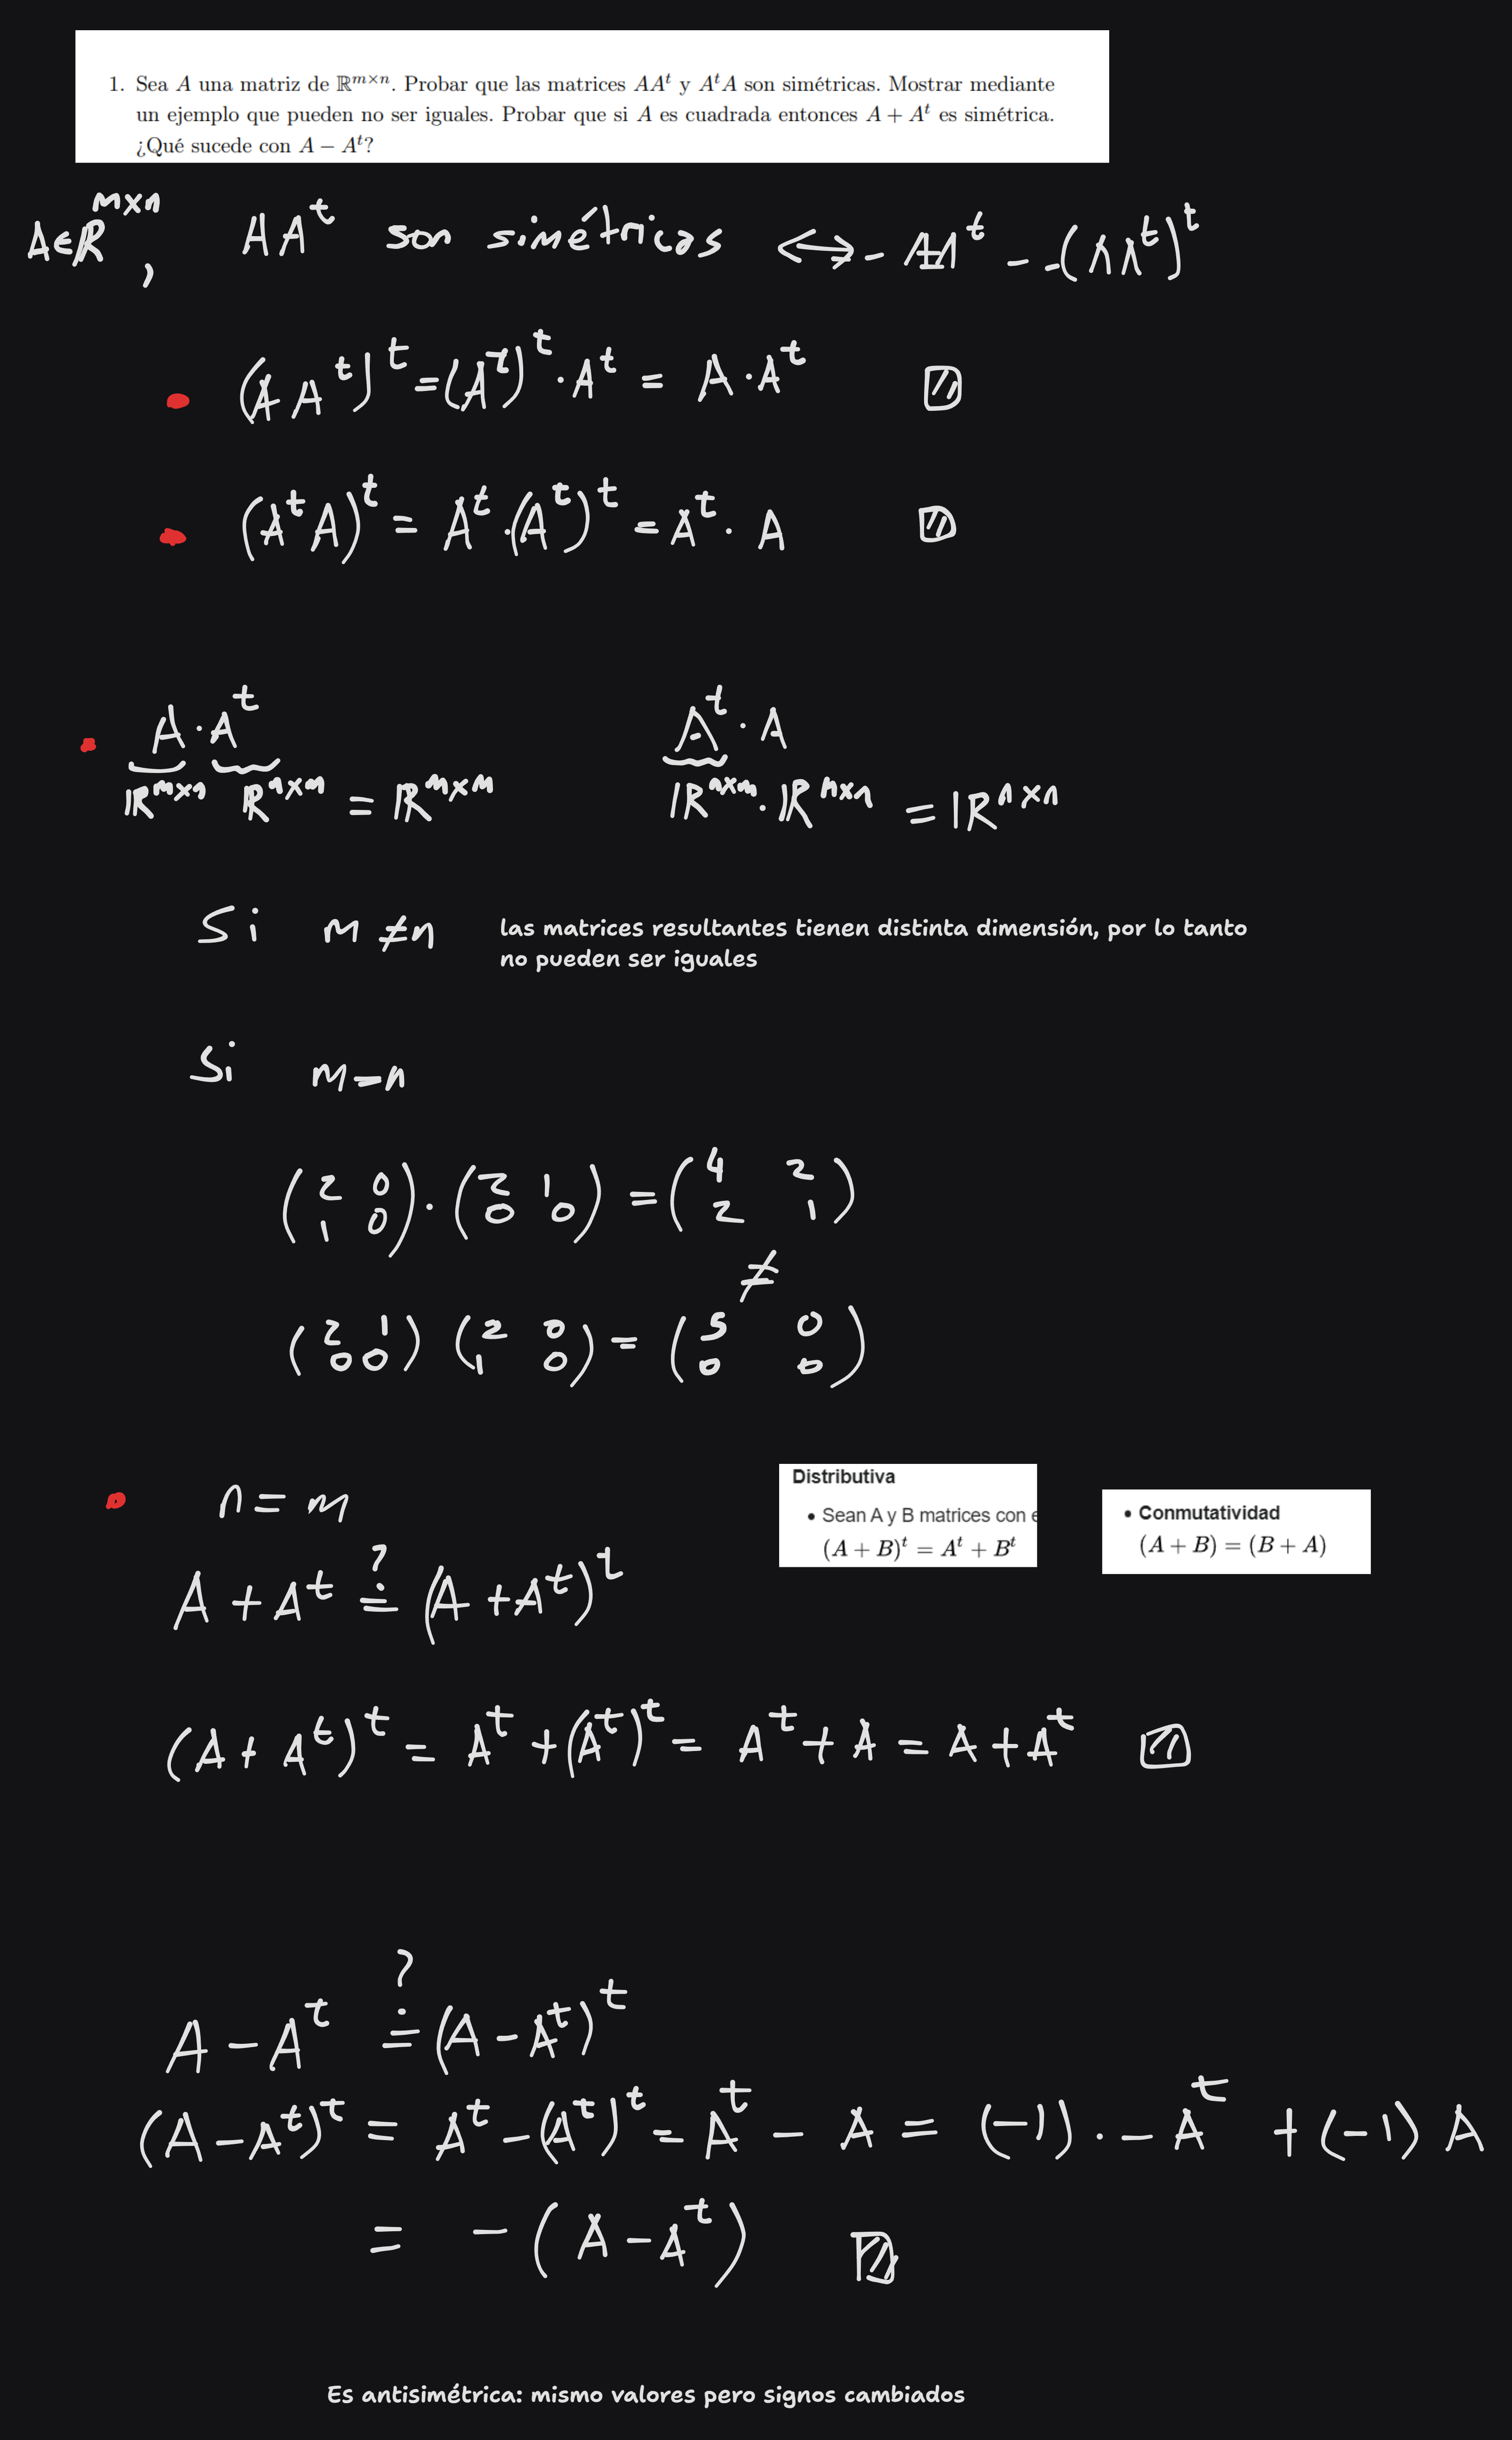 1. Sea A una matriz de ℝ^{m×n}. Probar que las matrices AA^t y A^tA son simétricas. Mostrar mediante
un ejemplo que pueden no ser iguales. Probar que si A es cuadrada entonces A + A^t es simétrica.
¿Qué sucede con A − A^t?
A∈ℝ^{m×n}, AA^t son simétricas ⟷ AA^t = (AA^t)^t
• (A A^t)^t = (A^t)^t · A^t = A · A^t
• (A^t A)^t = A^t · (A^t)^t = A^t · A
• A · A^t    A^t · A
ℝ^{m×n} ℝ^{n×m} = ℝ^{m×m}    ℝ^{n×m} · ℝ^{m×n} = ℝ^{n×n}
Si m ≠ n las matrices resultantes tienen distinta dimensión, por lo tanto
no pueden ser iguales
Si m = n
(2 0; 1 0) · (2 1; 0 0) = (4 2; 2 1)
≠
(2 1; 0 0) (2 0; 1 0) = (5 0; 0 0)
Distributiva
• Sean A y B matrices con e
(A + B)^t = A^t + B^t
• Conmutatividad
(A + B) = (B + A)
• n = m
?
A + A^t = (A + A^t)^t
(A + A^t)^t = A^t + (A^t)^t = A^t + A = A + A^t
?
A − A^t = (A − A^t)^t
(A − A^t)^t = A^t − (A^t)^t = A^t − A = (−1) · − A^t + (−1) A
= − (A − A^t)
Es antisimétrica: mismo valores pero signos cambiados